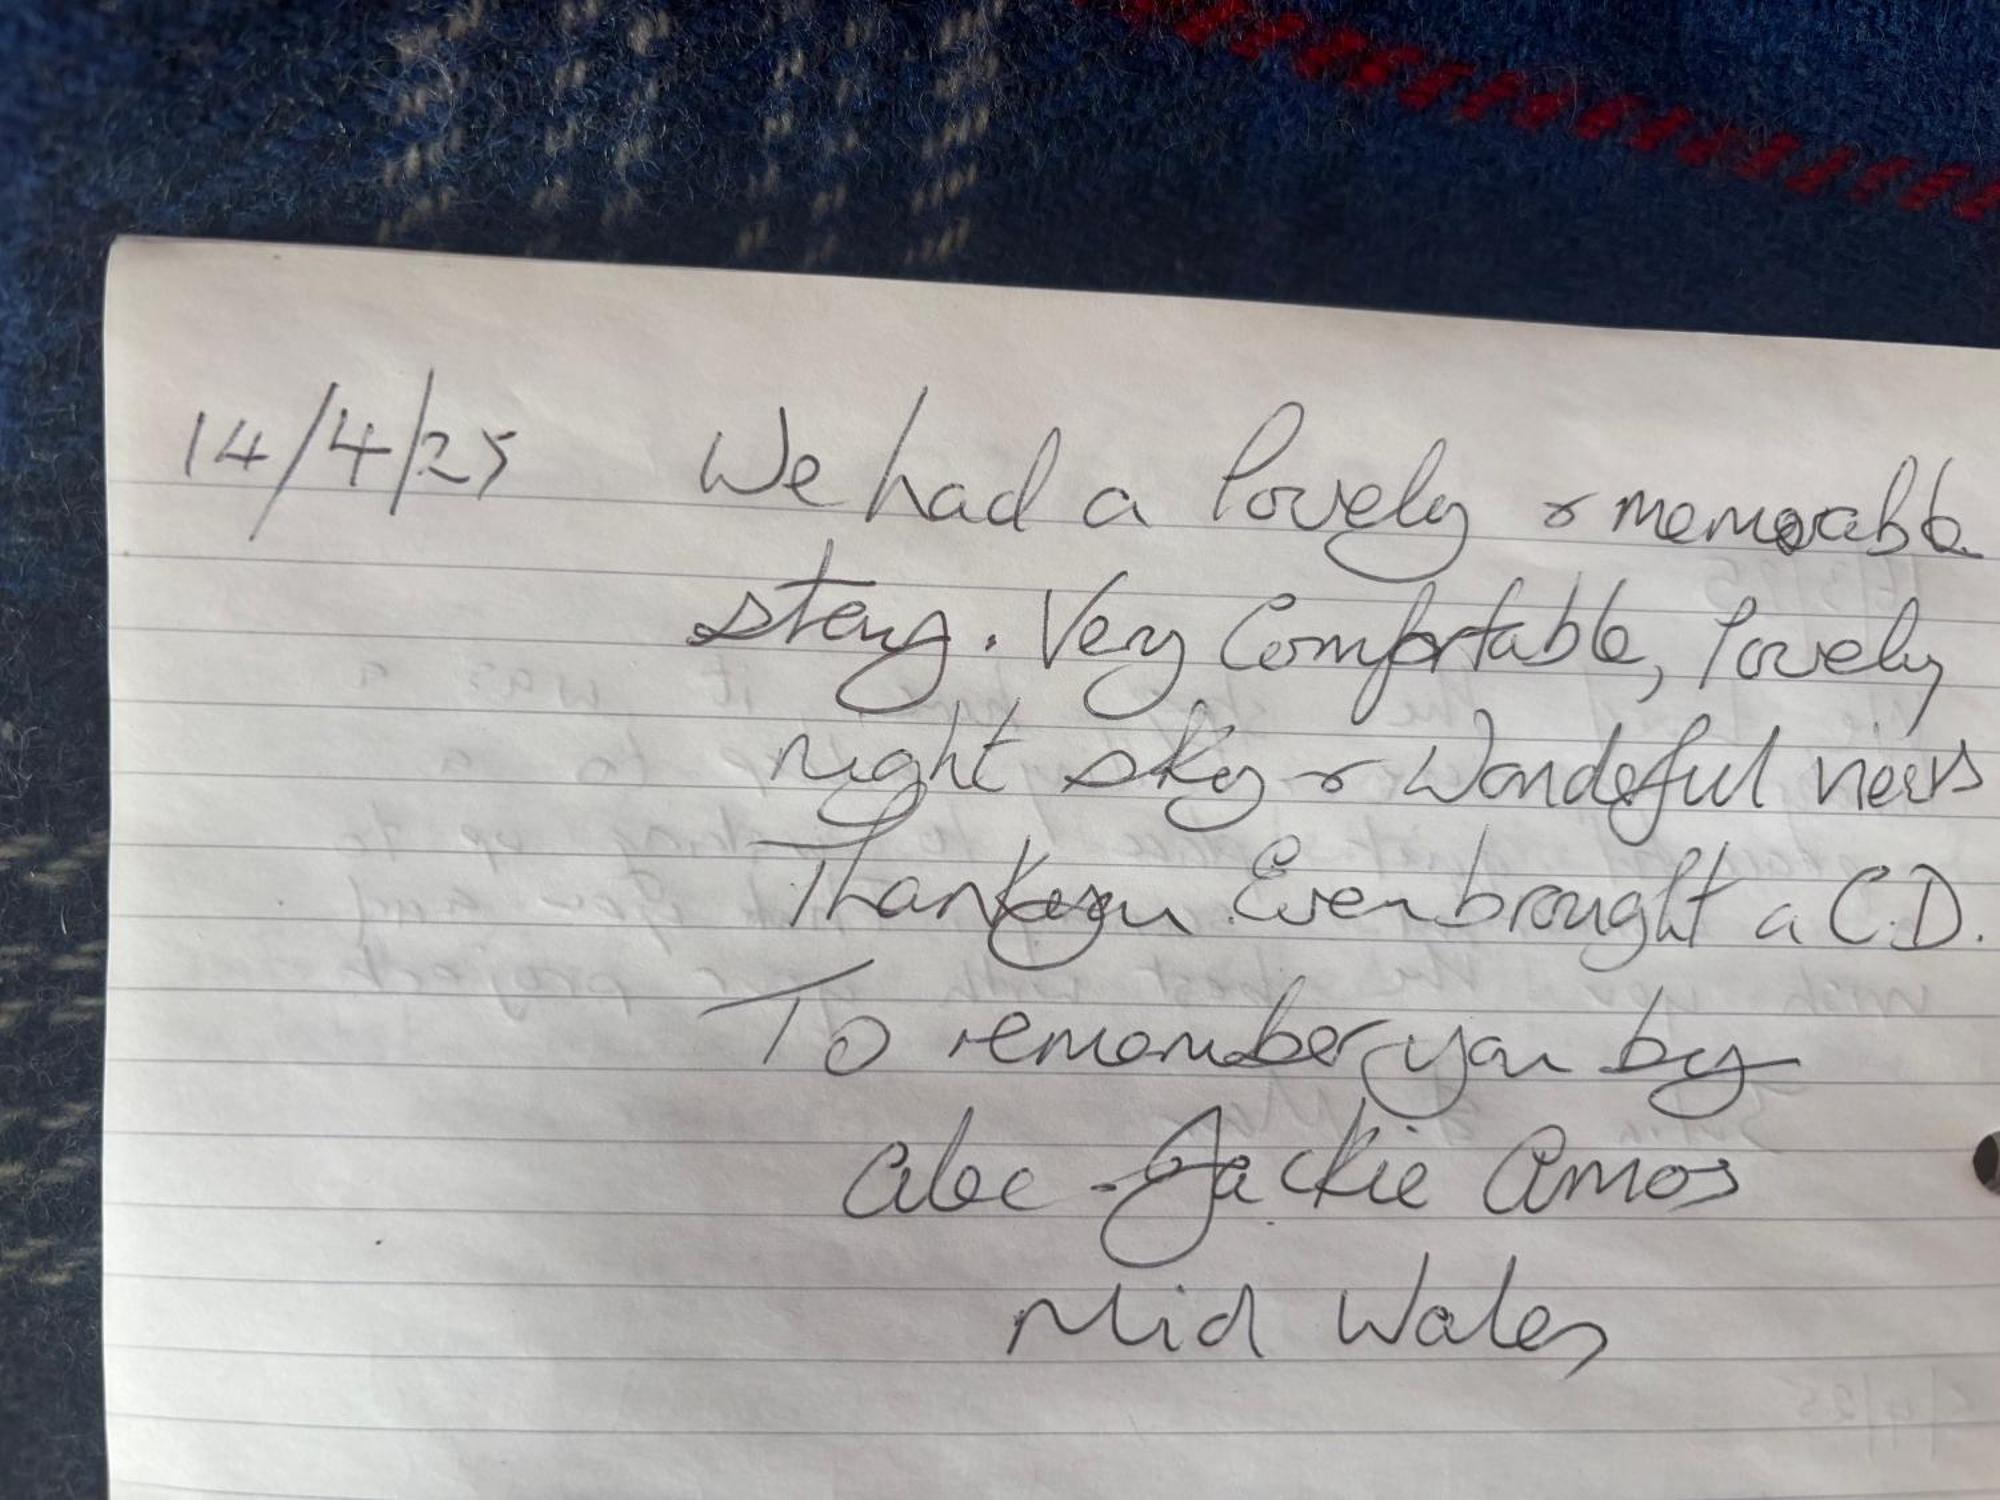 14/4/25 We had a lovely & memorable
stay. Very Comfortable, lovely
night sky & Wondeful views
Thankyou Even brought a C.D.
To remember you by
Alec - Jackie Amos
Mid Wales